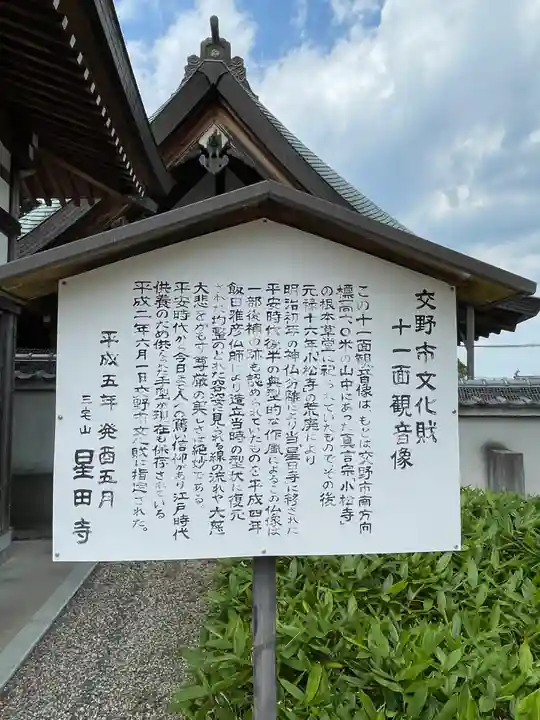 交野市文化財
十一面観音像
この十一面観音像は、もとは交野市南方向
標高二〇〇米の山中にあった真言宗小松寺
の根本草堂に祀られていたもので、その後
元禄十六年小松寺の荒廃により
明治初年の神仏分離により当星田寺に移された
平安時代後半の典型的な作風によるこの仏像は
一部後補の跡も認められていたものを平成四年
飯田雅彦仏師により造立当時の型状に復元
された均整のとれた容姿に見られる線の流れや大慈
大悲をかもす尊厳の美しさは絶妙である。
平安時代から今日まで人々の篤い信仰があり江戸時代
供養のため供なえた手型が現在も保存されている
平成二年六月一日交野市文化財に指定された。
平成五年 癸酉五月
三宅山 星田寺